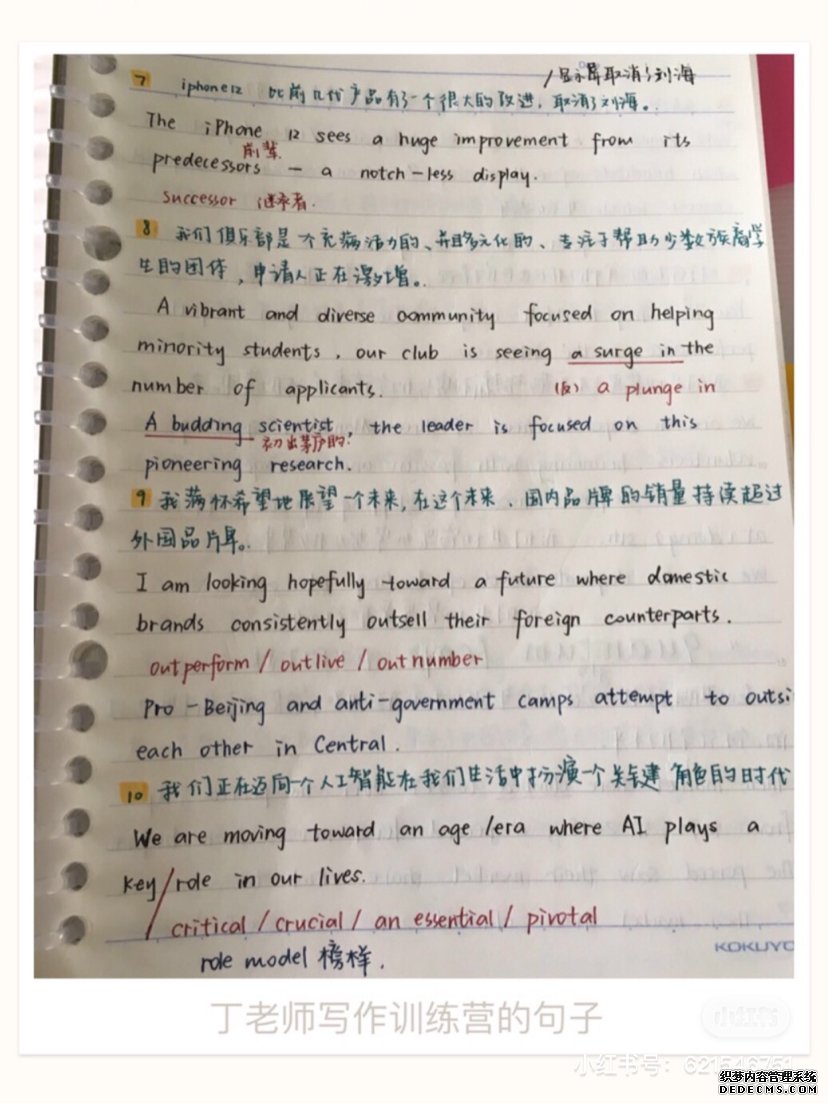 /显示屏取消了刘海
7 iphone12 比前几代产品有了一个很大的改进，取消了刘海。
The iPhone 12 sees a huge improvement from its
前辈
predecessors – a notch-less display.
successor 继承者.
8 我们俱乐部是个充满活力的、并且多元化的、专注于帮助少数族裔学
生的团体，申请人正在激增。
A vibrant and diverse community focused on helping
minority students, our club is seeing a surge in the
number of applicants. (反) a plunge in
A budding scientist, the leader is focused on this
初出茅庐的.
pioneering research.
9 我满怀希望地展望一个未来，在这个未来、国内品牌的销量持续超过
外国品牌。
I am looking hopefully toward a future where domestic
brands consistently outsell their foreign counterparts.
outperform / outlive / outnumber
Pro-Beijing and anti-government camps attempt to outsi
each other in Central.
10 我们正在迈向一个人工智能在我们生活中扮演一个关键角色的时代
We are moving toward an age/era where AI plays a
key/role in our lives.
critical / crucial / an essential / pivotal
role model 榜样.
KOKUYO
丁老师写作训练营的句子
小红书
小红书号: 621546751
织梦内容管理系统
DEDECMS.COM